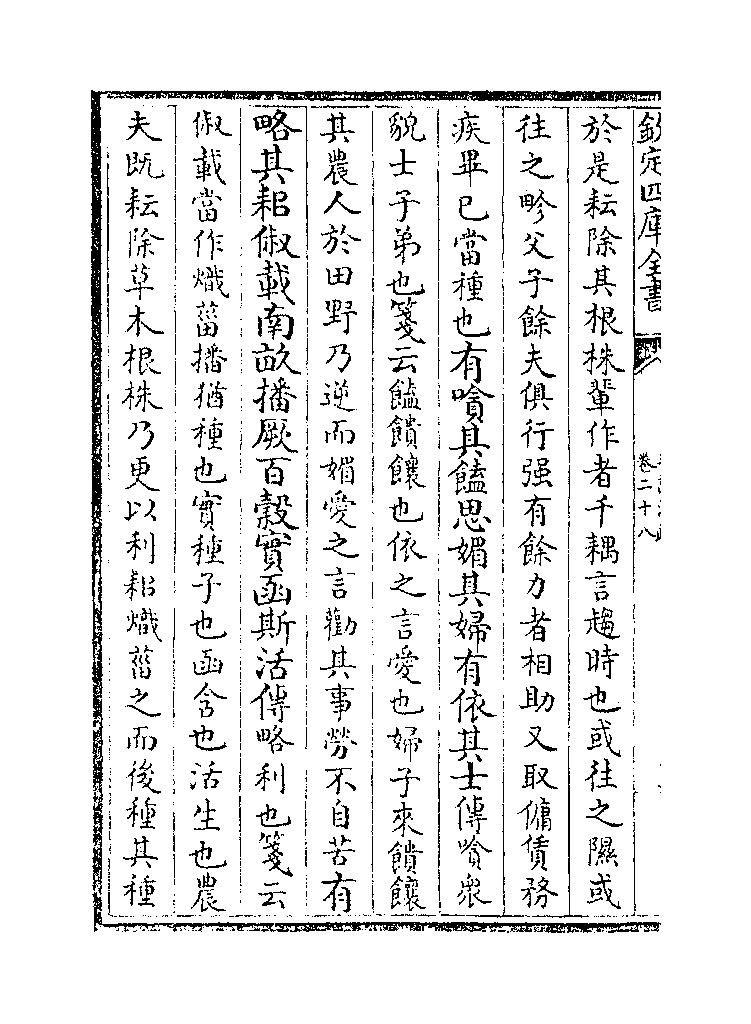 欽定四庫全書
卷二十八
於是耘除其根株輩作者千耦言趨時也或往之隰或
往之畛父子餘夫俱行强有餘力者相助又取傭賃務
疾畢已當種也有嗿其饁思媚其婦有依其士傳嗿衆
貌士子弟也箋云饁饋饟也依之言愛也婦子來饋饟
其農人於田野乃逆而媚愛之言勸其事勞不自苦有
略其耜俶載南畝播厥百穀實函斯活傳略利也箋云
俶載當作熾菑播猶種也實種子也函含也活生也農
夫既耘除草木根株乃更以利耜熾菑之而後種其種